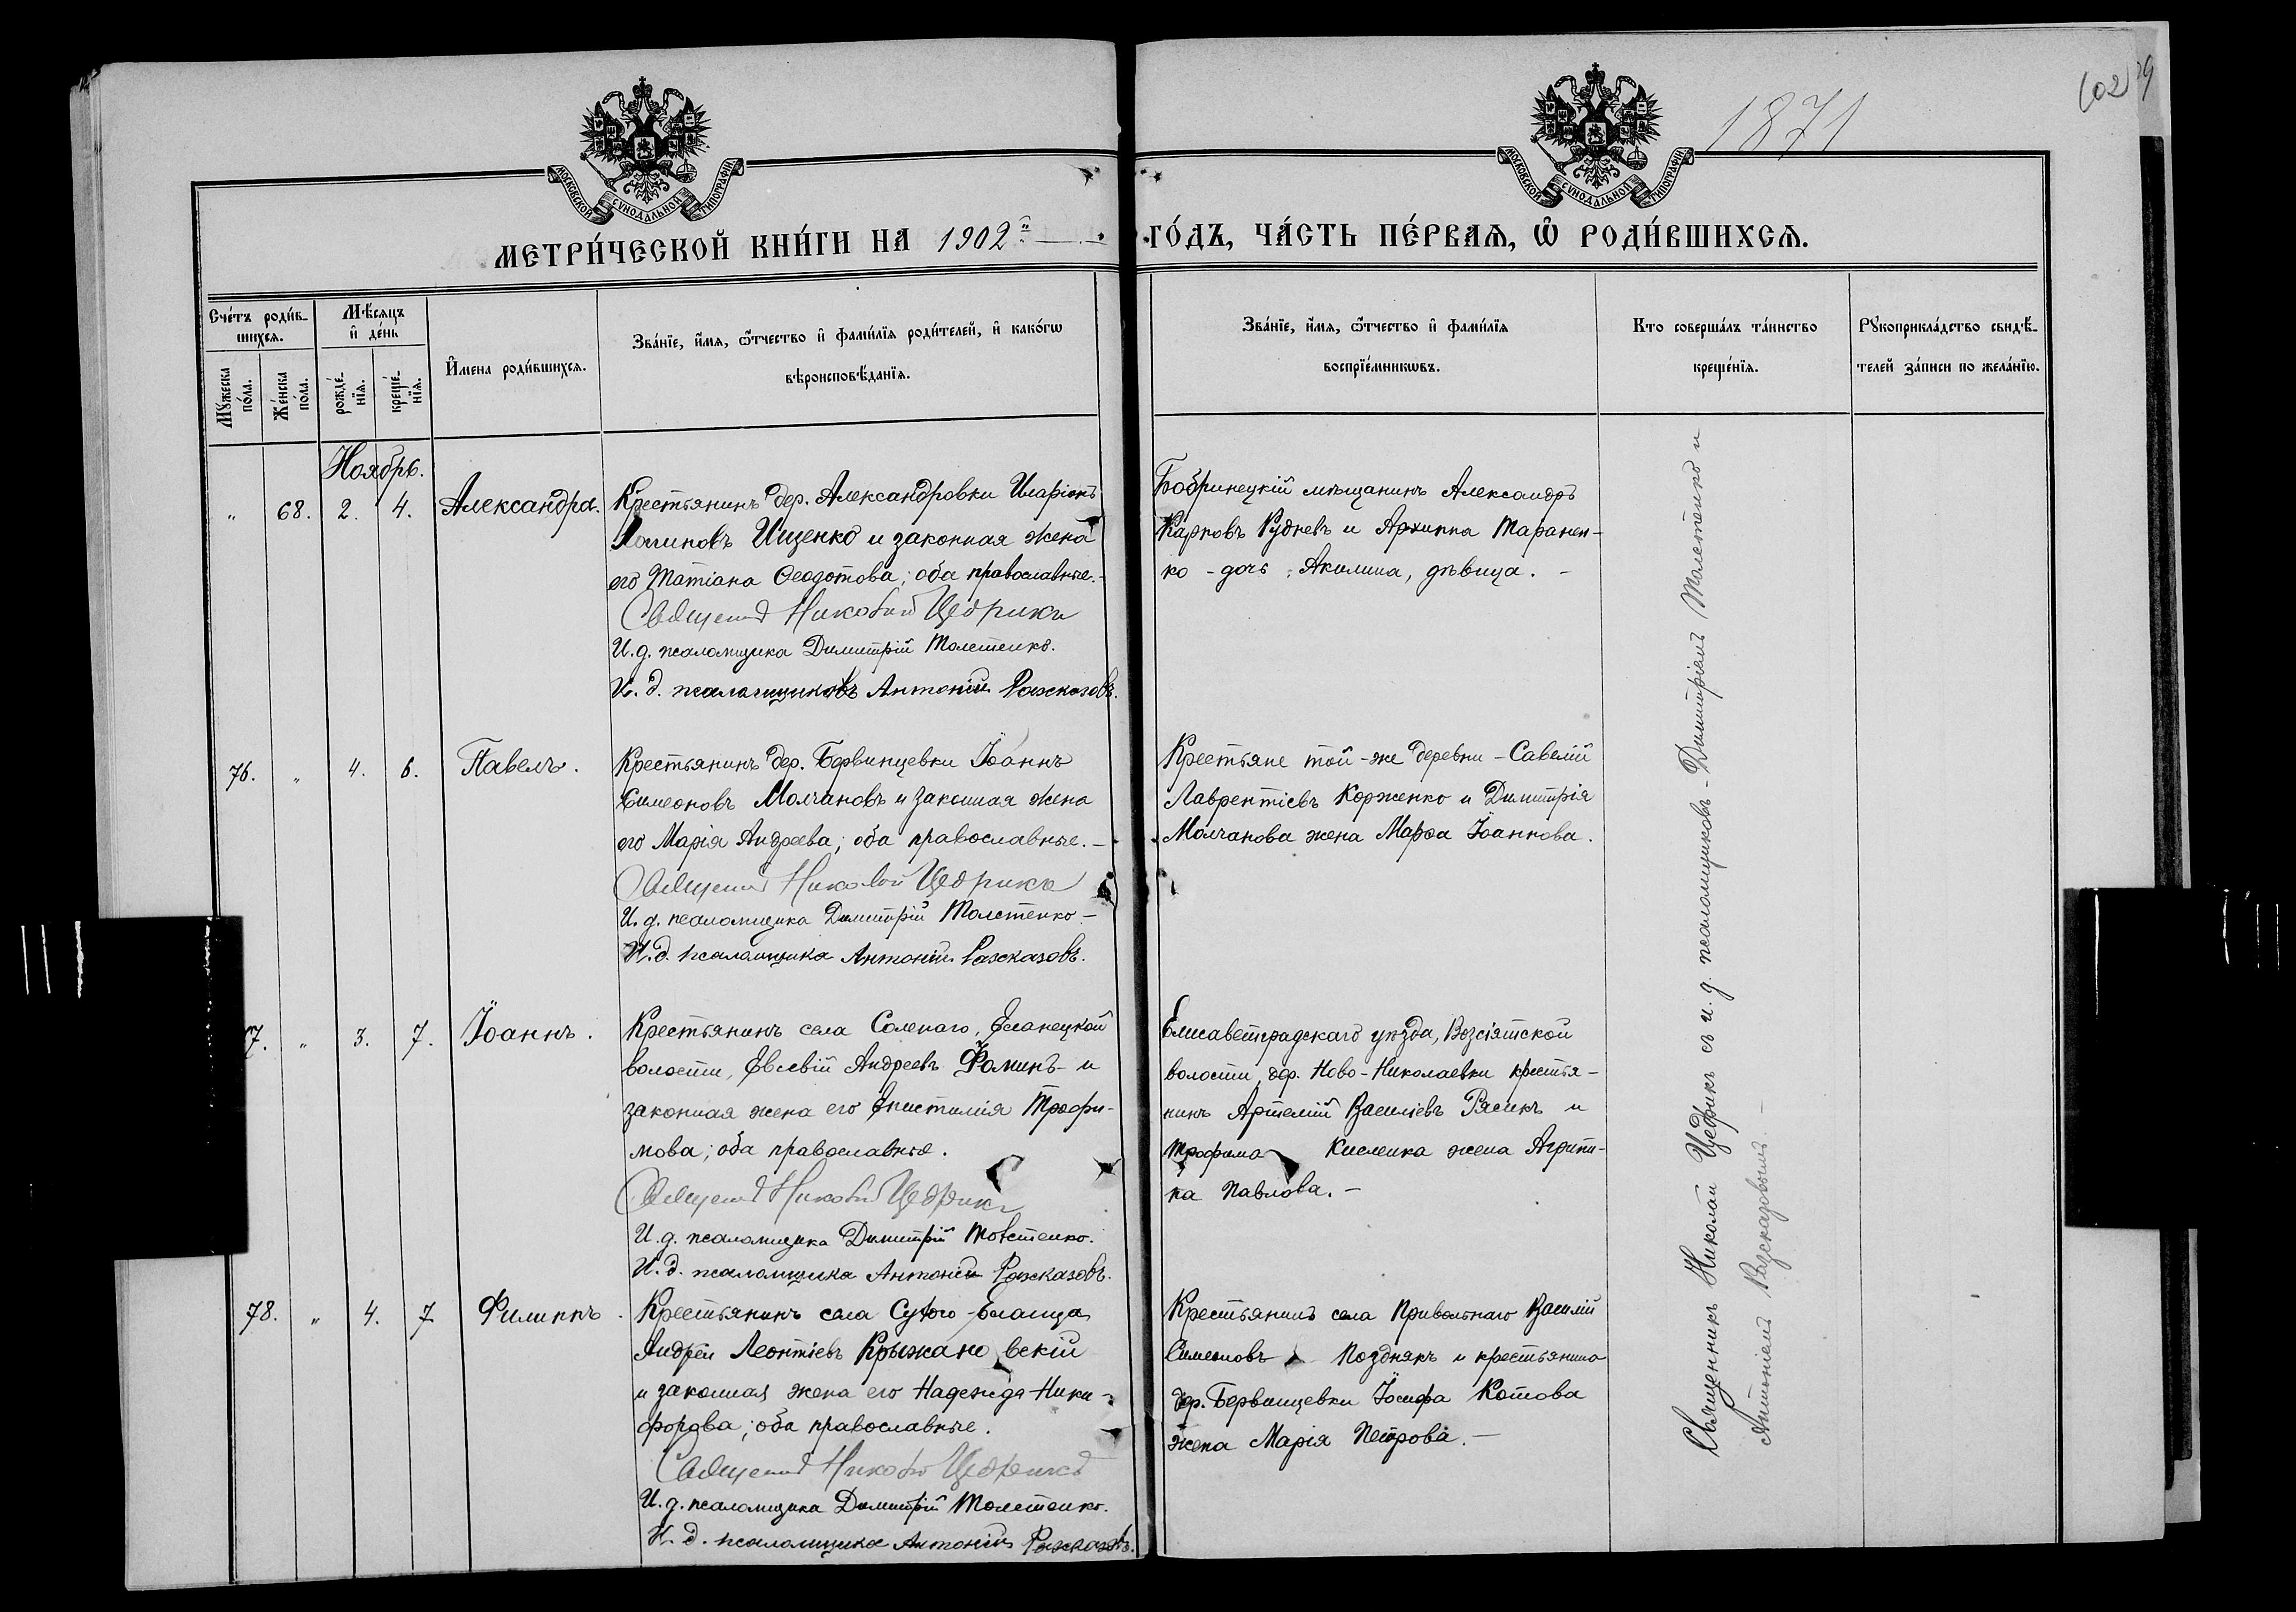 1871
МОСКОВСКОЙ СУНОДАЛЬНОЙ ТИПОГРАФІИ
МОСКОВСКОЙ СУНОДАЛЬНОЙ ТИПОГРАФІИ
МЕТРИ́ЧЕСКОЙ КНИ́ГИ НА 1902й ГО́ДЪ, ЧА́СТЬ ПЕ́РВАѦ, Ѡ҆ РОДИ́ВШИХСѦ.
Сче́тъ роди́в-
шихсѧ.
Мꙋ́жеска по́ла.
Же́нска по́ла.
Мѣ́сяцъ и҆ де́нь
рожде́-нїѧ.
креще́-нїѧ.
И҆мена роди́вшихсѧ.
Зва́нїе, и҆́мѧ, ѻ҆́тчество и҆ фами́лїѧ роди́телей, и҆ како́гѡ
вѣроисповѣ́данїѧ.
Зва́нїе, и҆́мѧ, ѻ҆́тчество и҆ фами́лїѧ
воспрїе́мникѡвъ.
Кто соверша́лъ та́инство
креще́нїѧ.
Рꙋкоприкла́дство свидѣ́-
телей за́писи по жела́нїю.
Ноябрь.
" 68. 2. 4. Александра.
Крестьянинъ дер. Александровки Иларіонъ
Ищенко и законная жена
его Татіана Ѳеодотова; оба православные.-
Священник Николай Цедрикъ
И. д. псаломщика Димитрій Толстенко.
И. д. псаломщиковъ Антоній Разсказовъ.
Бобринецкій мѣщанинъ Александръ
Карповъ Рудневъ и Архиппа Таранен-
ко - дочь, Акилина, дѣвица. -
76. " 4. 6. Павелъ.
Крестьянинъ дер. Бервинцевки Іоаннъ
Симеоновъ Молчановъ и законная жена
его Марія Андреева; оба православные. -
Священник Николай Цедрикъ
И. д. псаломщика Димитрій Толстенко -
И. д. псаломщика Антоній Разсказовъ.
Крестьяне той-же деревни - Савелій
Лаврентіевъ Корженко и Димитрія
Молчанова жена Марѳа Іоаннова.
7. " 3. 7. Іоаннъ.
Крестьянинъ села Соленаго, Еланецкой
волости, Евсевій Андреевъ Ѳоминъ - и
законная жена его Епистимія Трофи-
мова; оба православные.
Священник Николай Цедрикъ
И. д. псаломщика Димитрій Товстенко.
И. д. псаломщика Антоній Разсказовъ.
Елисаветградскаго уѣзда, Возсіятской
волости, дер. Ново-Николаевки крестья-
нинъ Артемій Василіевъ и
Трофима Кисленка жена Агрипи-
на Павлова. -
78. " 4. 7 Филиппъ.
Крестьянинъ села Сухого-Еланца
Андрей Леонтіевъ Крыжановскій
и законная жена его Надежда Ники-
форова; оба православные.
Священник Николай Цедрикъ
И. д. псаломщика Димитрій Толстенко.
И. д. псаломщика Антоній Разсказовъ.
Крестьянинъ села Привольнаго Василій
Симеоновъ Позднякъ и крестьянина
дер. Бервинцевки Іосифа Котова
жена Марія Петрова. -
Священникъ Николай Цедрикъ съ и. д. псаломщиковъ - Димитріемъ Толстенко и
Антоніемъ Разсказовымъ. -